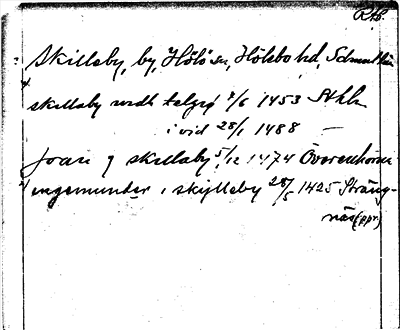 RAp.
Skilleby, by, Hölö sn, Hölebo hd, Södermanl.
skilleby widh telgiø 4/6 1453 Sthlm
i vid 28/1 1488 —
joan i skilleby 5/12 1474 Överenhörna
ingemunder i skylleby 28/5 1425 Sträng-
näs (ppr)